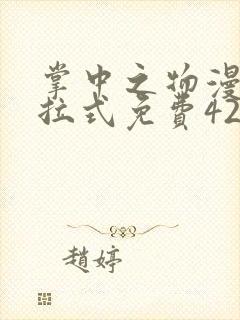 掌中之物漫
拉式免費42
趙婷